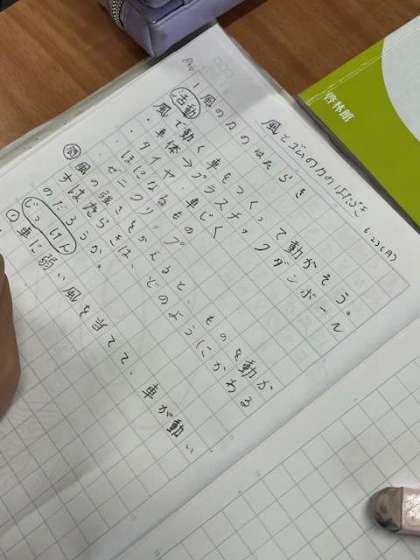 風とゴムの力のはたらき
6.23(月)
1 風の力のはたらき
活動
風で動く車をつくって動かそう。
・車体→プラスチックダンボール
・タイヤ・車じく
・ほになるもの
・ゼニクリップ
問 風の強さをかえると、ものを動か
すはたらきは、どのようにかわる
のだろうか。
じっけん
① 車に弱い風を当てて、車が動い
啓林館